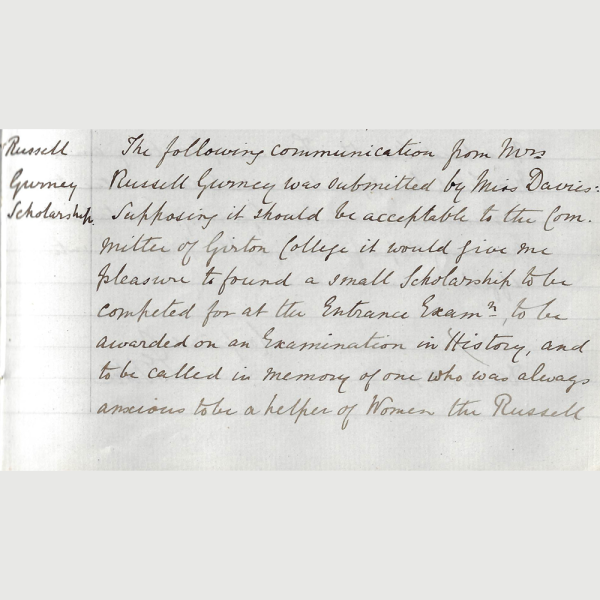 Russell
Gurney
Scholarship.
The following communication from Mrs
Russell Gurney was submitted by Miss Davies:
Supposing it should be acceptable to the Com-
mittee of Girton College it would give me
pleasure to found a small Scholarship to be
competed for at the Entrance Examn, to be
awarded on an Examination in History, and
to be called in memory of one who was always
anxious to be a helper of Women the Russell